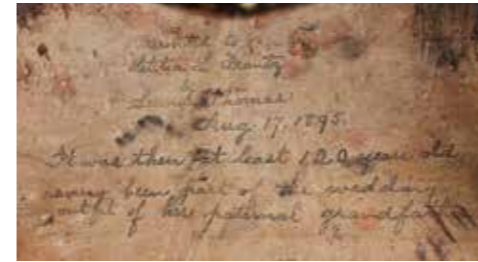 Presented to
by
Thomas
Aug 17, 1895.
It was then at least 120 years old,
having been part of the wedding
outfit of her paternal grandfather